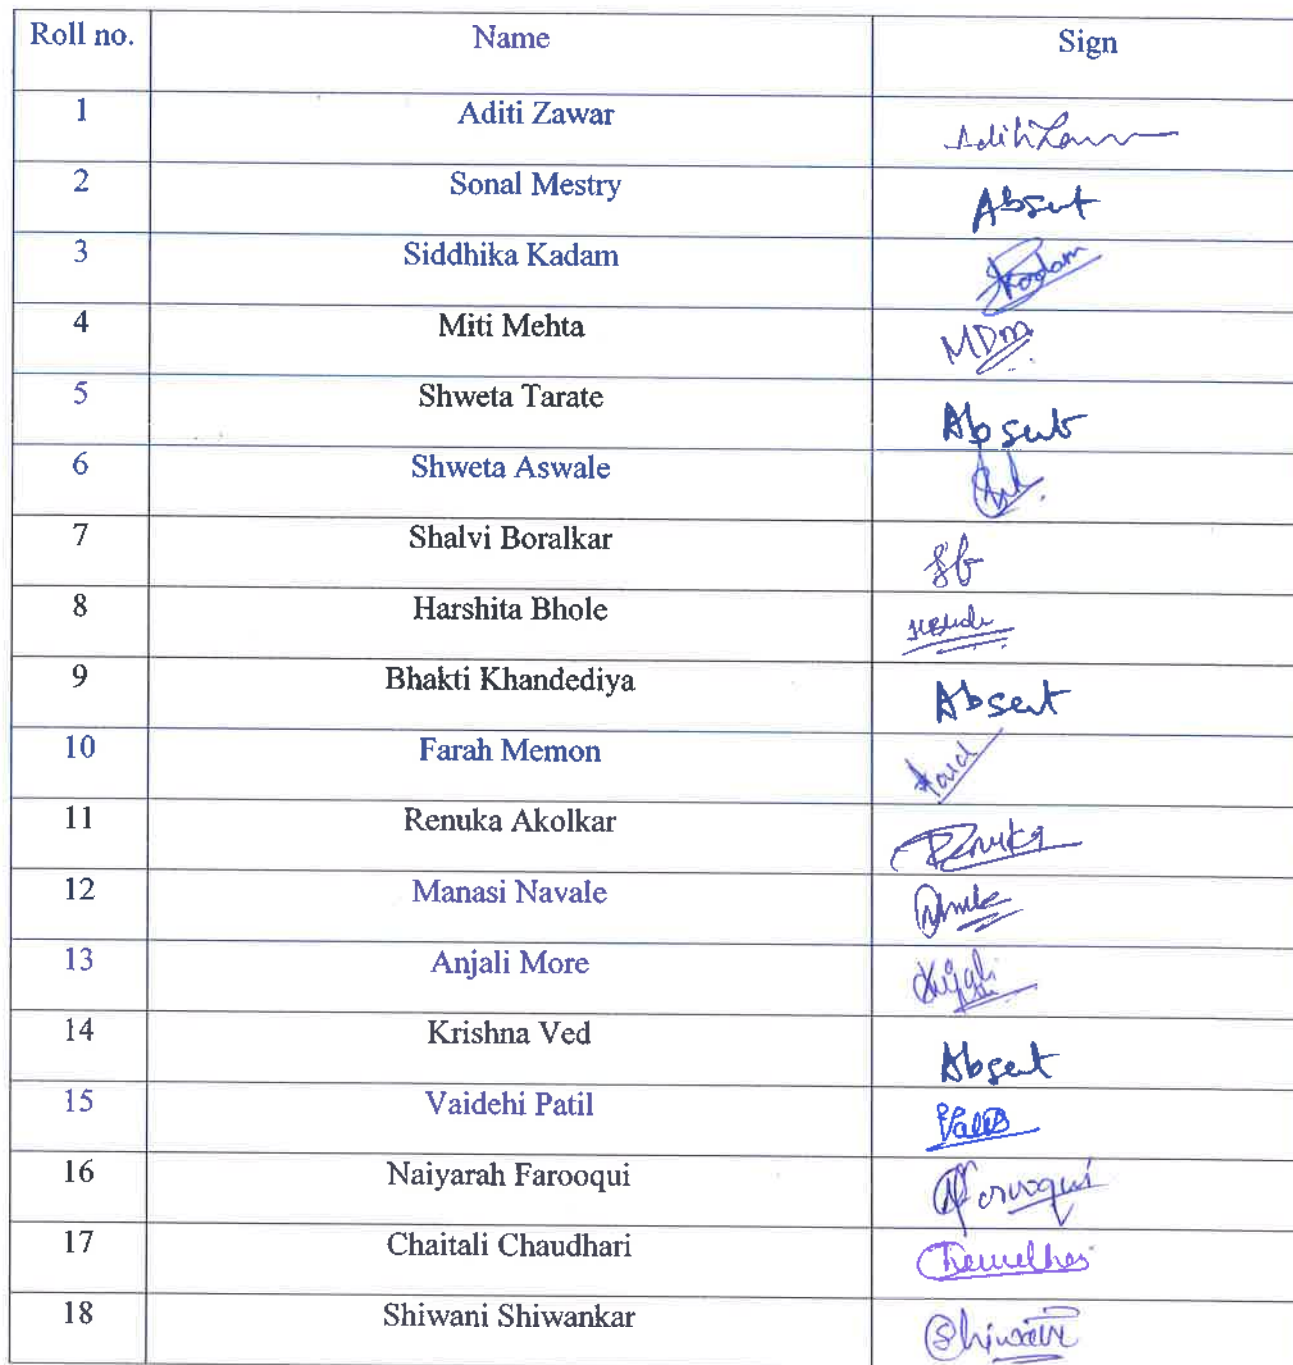 Roll no. Name Sign
1 Aditi Zawar
2 Sonal Mestry Absent
3 Siddhika Kadam Kadam
4 Miti Mehta MDM
5 Shweta Tarate Absent
6 Shweta Aswale
7 Shalvi Boralkar SB
8 Harshita Bhole
9 Bhakti Khandediya Absent
10 Farah Memon
11 Renuka Akolkar Renuka
12 Manasi Navale
13 Anjali More Anjali
14 Krishna Ved Absent
15 Vaidehi Patil
16 Naiyarah Farooqui Farooqui
17 Chaitali Chaudhari
18 Shiwani Shiwankar Shiwani